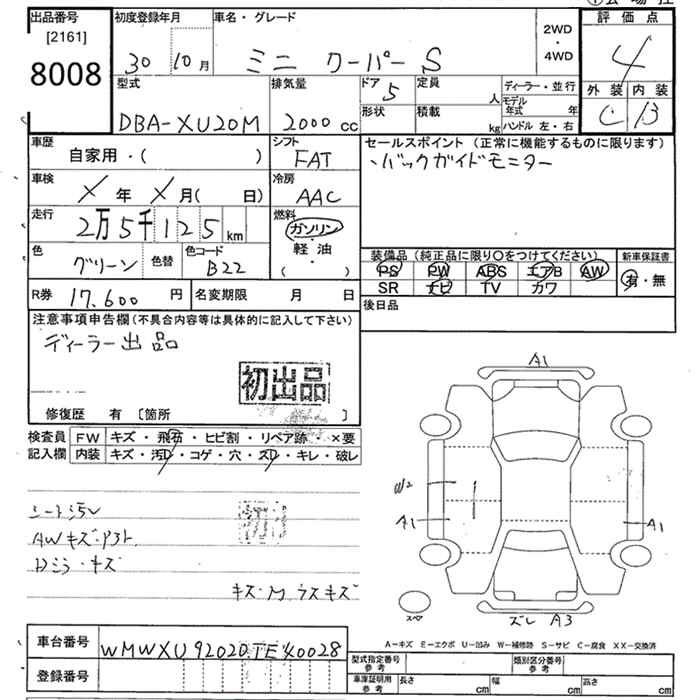 出品番号
[2161]
8008
初度登録年月
30 10月
車名・グレード
ミニ クーパー S
2WD
・
4WD
評価点
4
外装 内装
C B
型式
DBA-XU20M
排気量
2000 cc
ドア
5
形状
定員
人
積載
kg
ディーラー・並行
モデル年式 年
ハンドル 左・右
車歴
自家用・( )
シフト
FAT
車検
X 年 X 月( 日)
冷房
AAC
走行
2万5千125 km
燃料
ガソリン
・
軽油
・
( )
色
グリーン
色替
色コード
B22
R券 17,600 円
名変期限 月 日
セールスポイント (正常に機能するものに限ります)
・バックガイドモニター
装備品 (純正品に限り○をつけてください)
PS PW ABS エアB AW
SR ナビ TV カワ
新車保証書
有・無
後日品
注意事項申告欄(不具合内容等は具体的に記入して下さい)
ディーラー出品
初出品
修復歴 有 [箇所 ]
検査員記入欄
FW キズ・飛石・ヒビ割・リペア跡・×要
内装 キズ・汚レ・コゲ・穴・スレ・キレ・破レ
シート汚レ
AWキズ・
Dミラーキズ
キズ・M
A1
W2
A1
A1
スペア
ズレ A3
A-キズ E-エクボ U-凹み W-補修跡 S-サビ C-腐食 XX-交換済
車台番号
WMWXU92020TE40028
登録番号
型式指定番号 参考
類別区分番号 参考
車庫証明用 参考
長さ cm
幅 cm
高さ cm